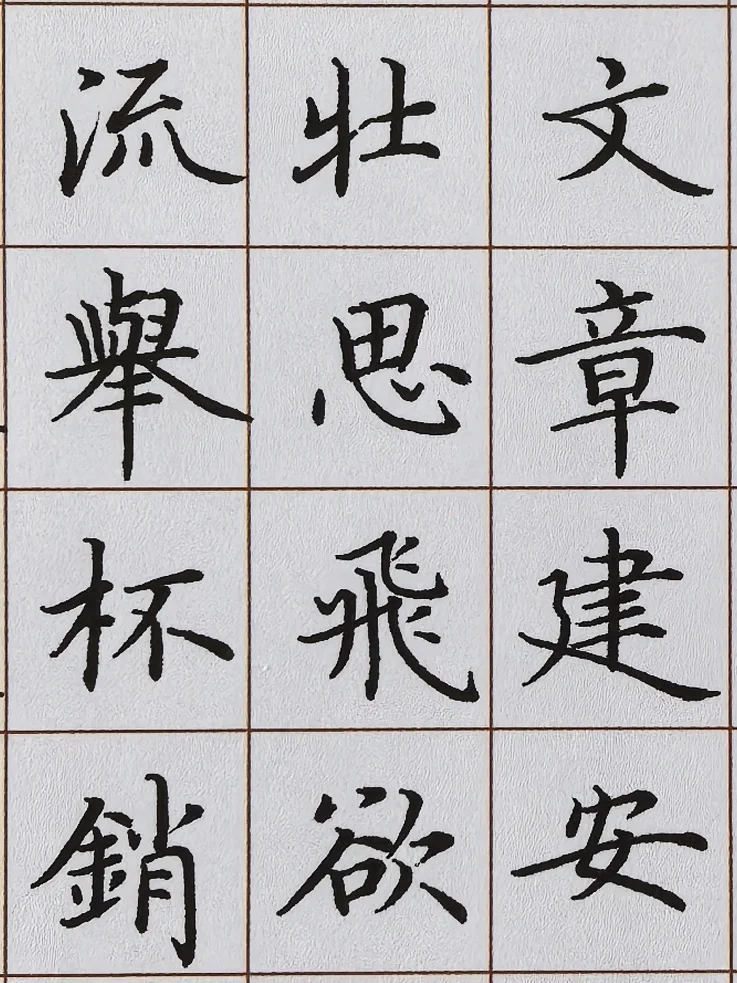 文章建安
壯思飛欲
流舉杯銷